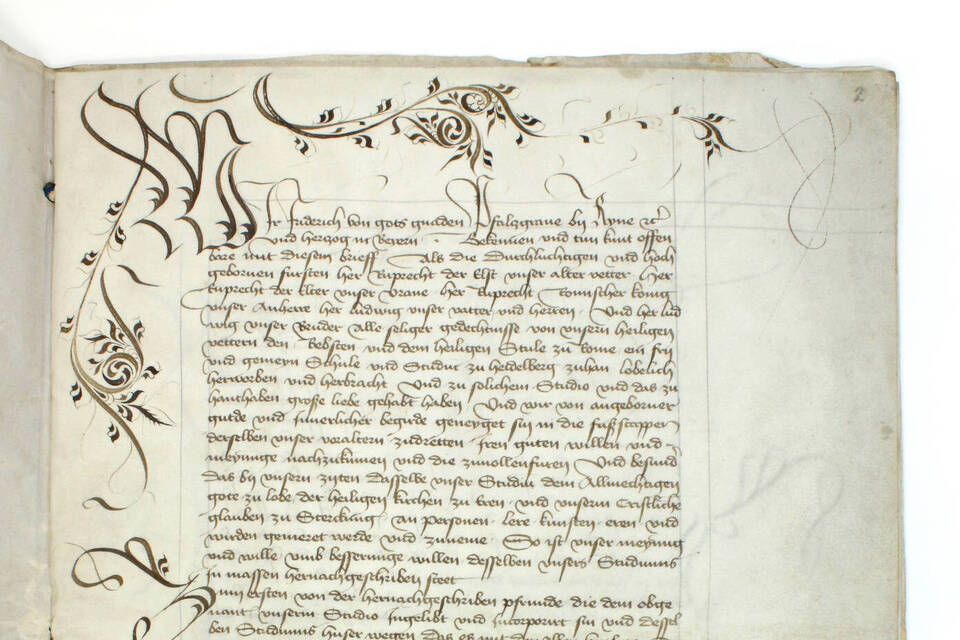 2
Wir Friderich von gots gnaden Pfalzgraue by Ryne etc
vnd herzog in beyern · Bekennen vnd tun kunt offen
bare mit diesem brieff · Als die durchluchtigen vnd hoch
gebornen fursten her Ruprecht der Elst vnser alter vetter · her
Ruprecht der elter vnser vrane her Ruprecht Romischer konig
vnser Anherre her ludwig vnser vatter vnd herren · Vnd her lud
wig vnser Bruder Alle seliger gedechtnisse von vnsern heiligen
vettern den Bebsten vnd dem heiligen Stule zu Rome ein fry
vnd gemeyn Schule vnd Studiu zu heidelberg zuhan lobelich
herworben vnd herbracht Vnd zu solichem Studio vnd das zu
hanthaben große liebe gehabt haben Vnd wir von angeborner
gutde vnd Innerlicher begirde geneyget sin in die fußstappen
derselben vnser voraltern zudretten Iren guten willen vnd
meynunge nachzukumen vnd die zuuollenfuren Vnd besund
das by vnsern zyten dasselbe vnser Studiu dem Allmechtigen
gote zu lobe der heiligen kirchen zu Eren vnd vnserm Cristliche
glauben zu Sterckung an personen lere kunsten eren vnd
wirden gemeret werde vnd zuneme So ist vnser meynug
vnd wille vmb besserunge willen desselben vnsers Studiums
In massen hernachgeschriben steet
Zum ersten von der hernachgeschriben pfrunde die dem obge
nant vnserm Studio Ingelibt vnd Incorporirt sin vnd dessel
ben Studiums huser wegen Das es mit den allen